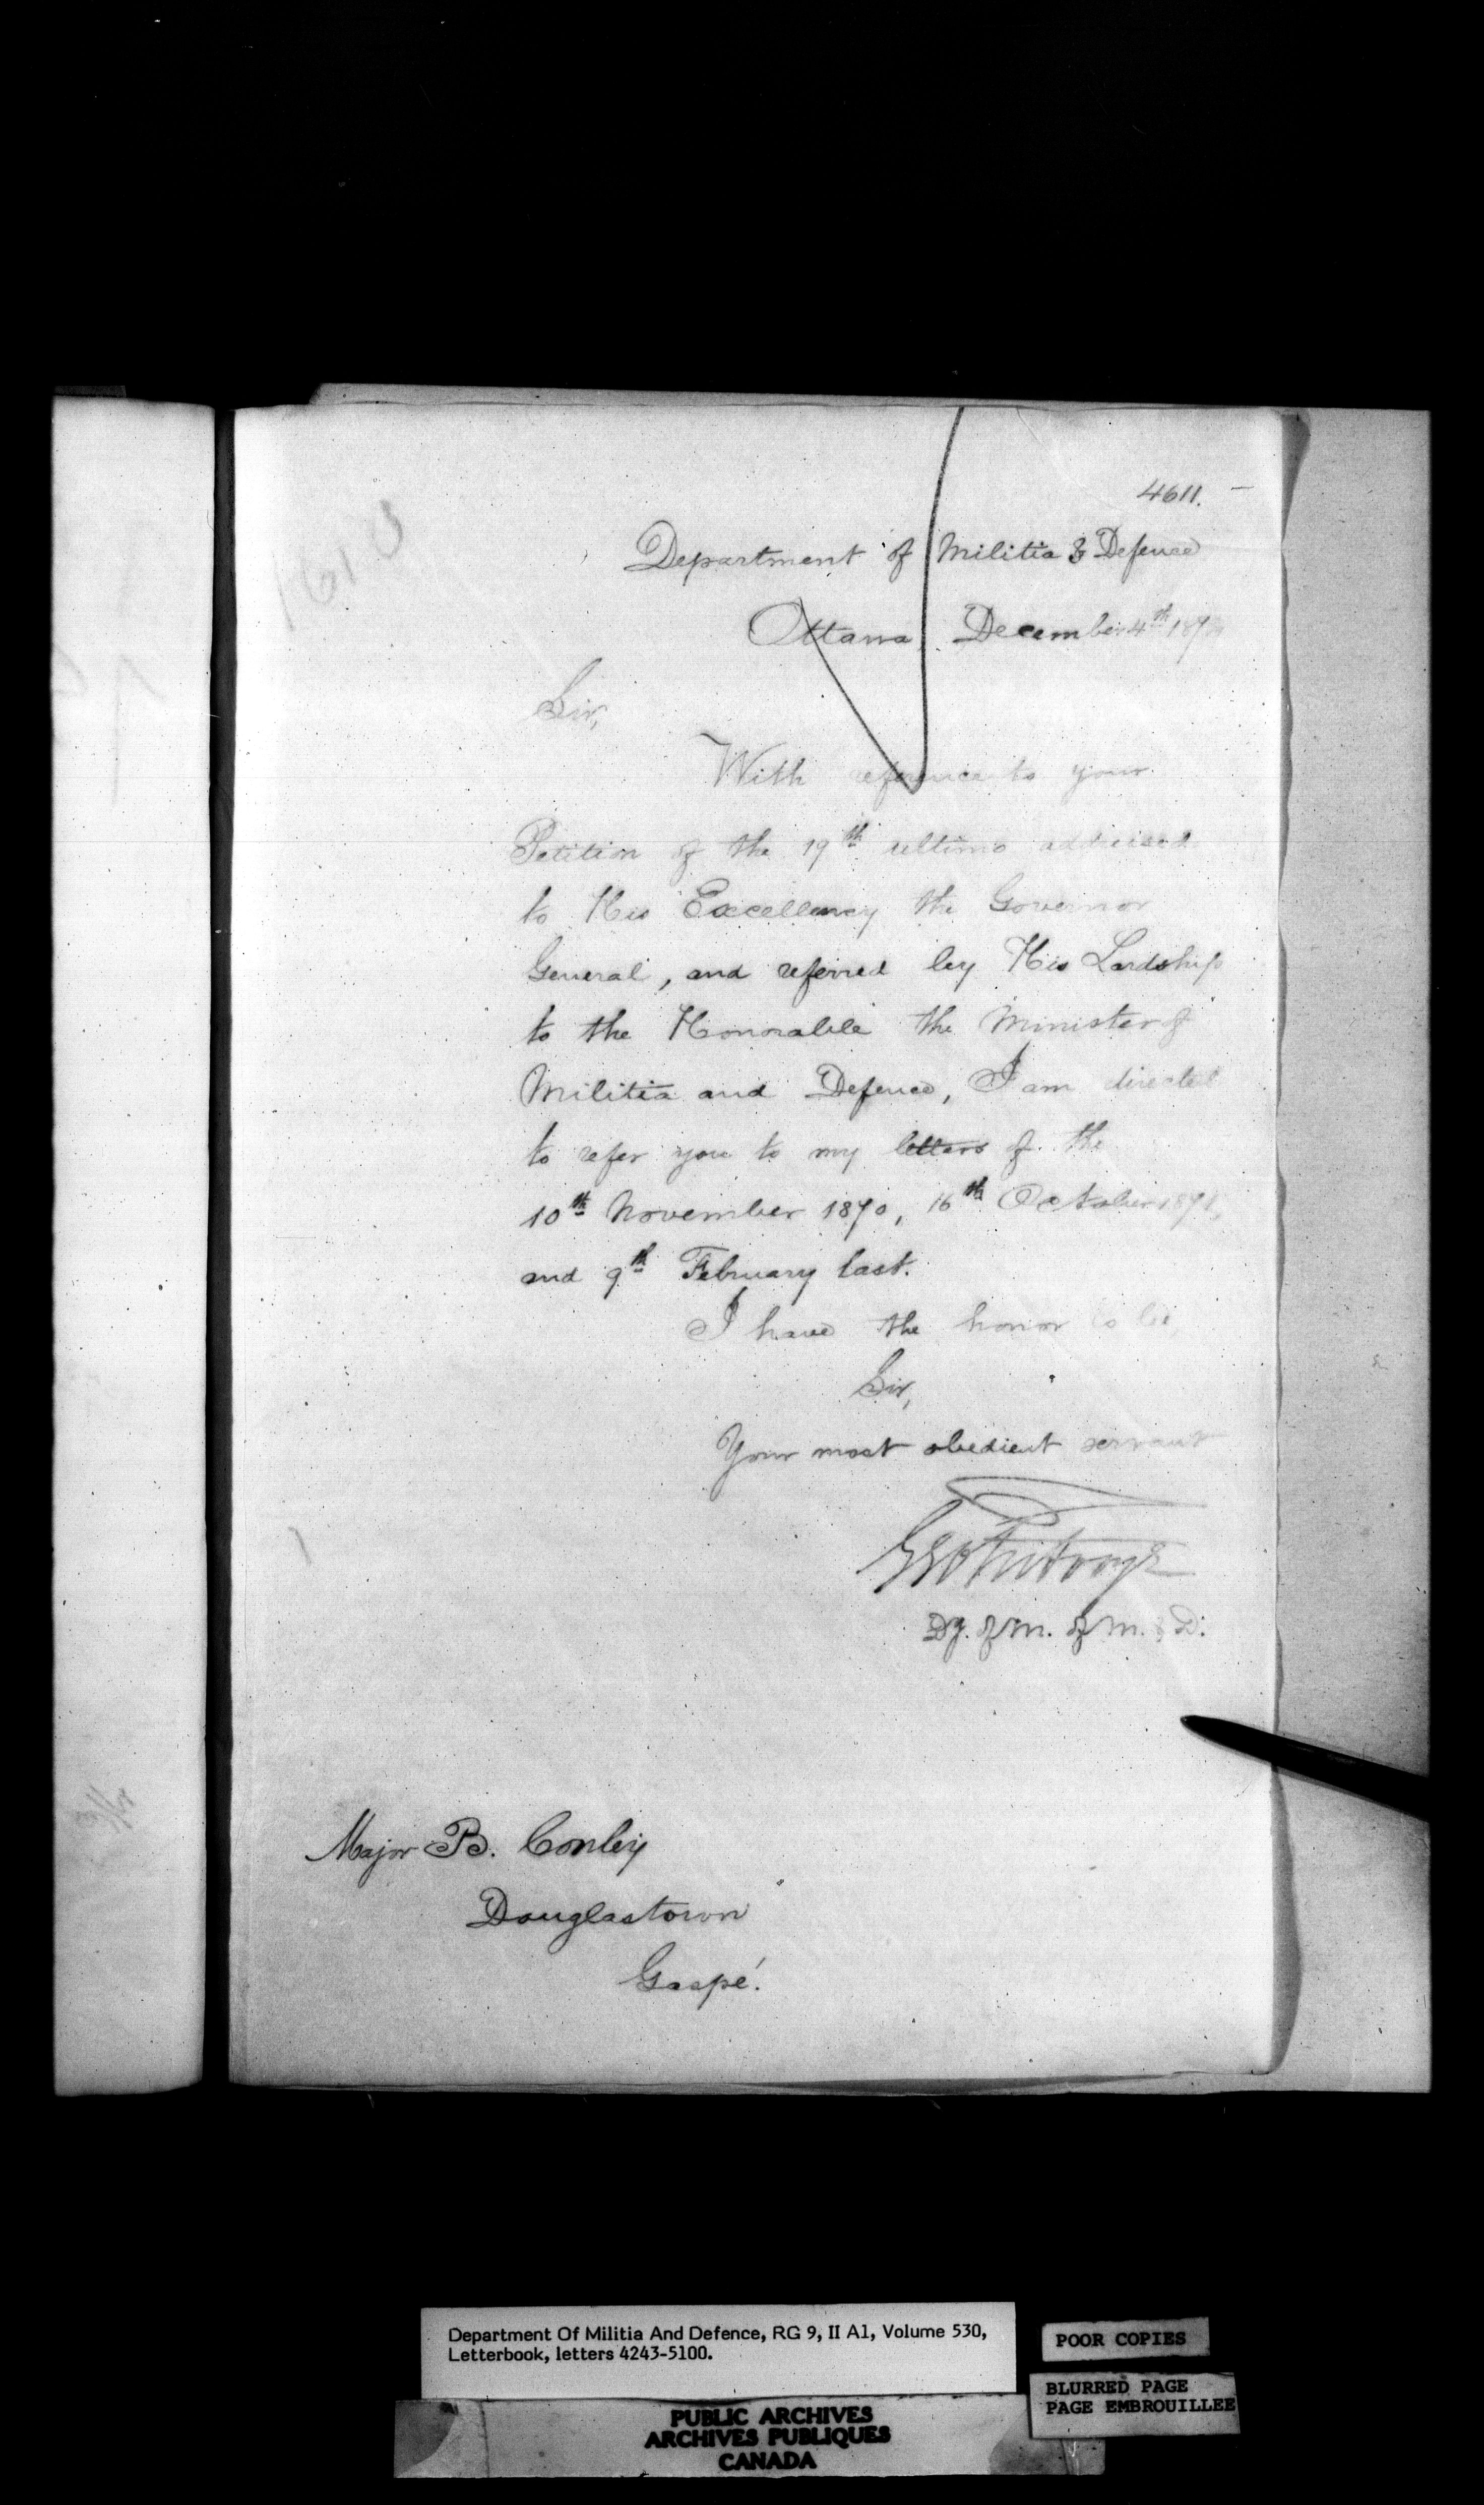 4611.
Department of Militia & Defence
Ottawa, December 4th 187
Sir,
With reference to your
Petition of the 19th ultimo addressed
to His Excellency the Governor
General, and referred by His Lordship
to the Honorable the Minister of
Militia and Defence, I am directed
to refer you to my letters of the
10th November 1870, 16th October 1871,
and 9th February last.
I have the honor to be,
Sir,
Your most obedient servant
Dy. of M. of M. & D.
Major B. Conley
Douglastown
Gaspé.
Department Of Militia And Defence, RG 9, II A1, Volume 530,
Letterbook, letters 4243-5100.
POOR COPIES
BLURRED PAGE
PAGE EMBROUILLEE
PUBLIC ARCHIVES
ARCHIVES PUBLIQUES
CANADA